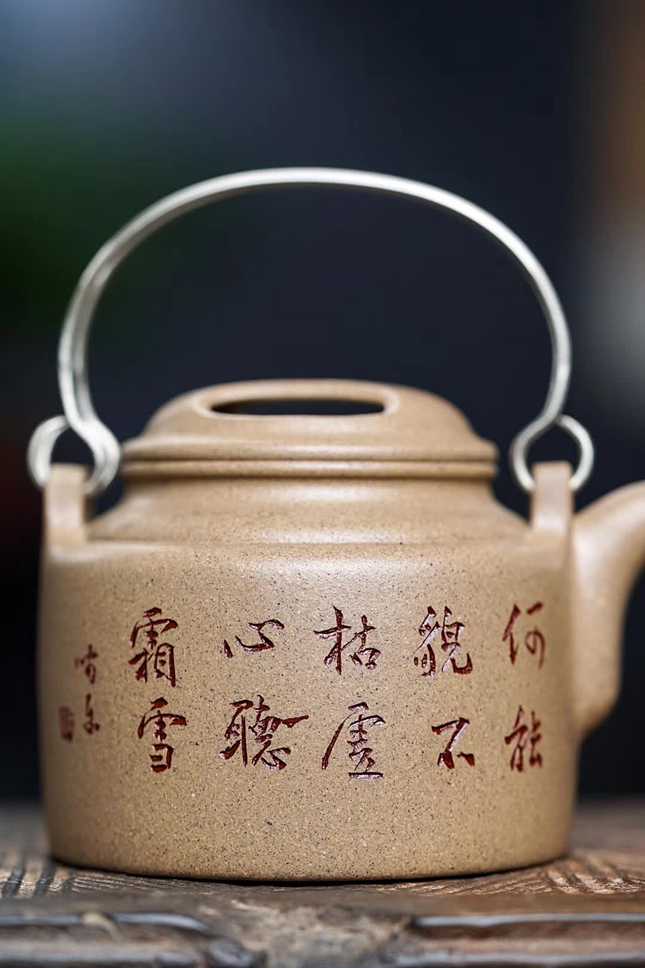 何能
貌不
枯虚
心聽
霜雪